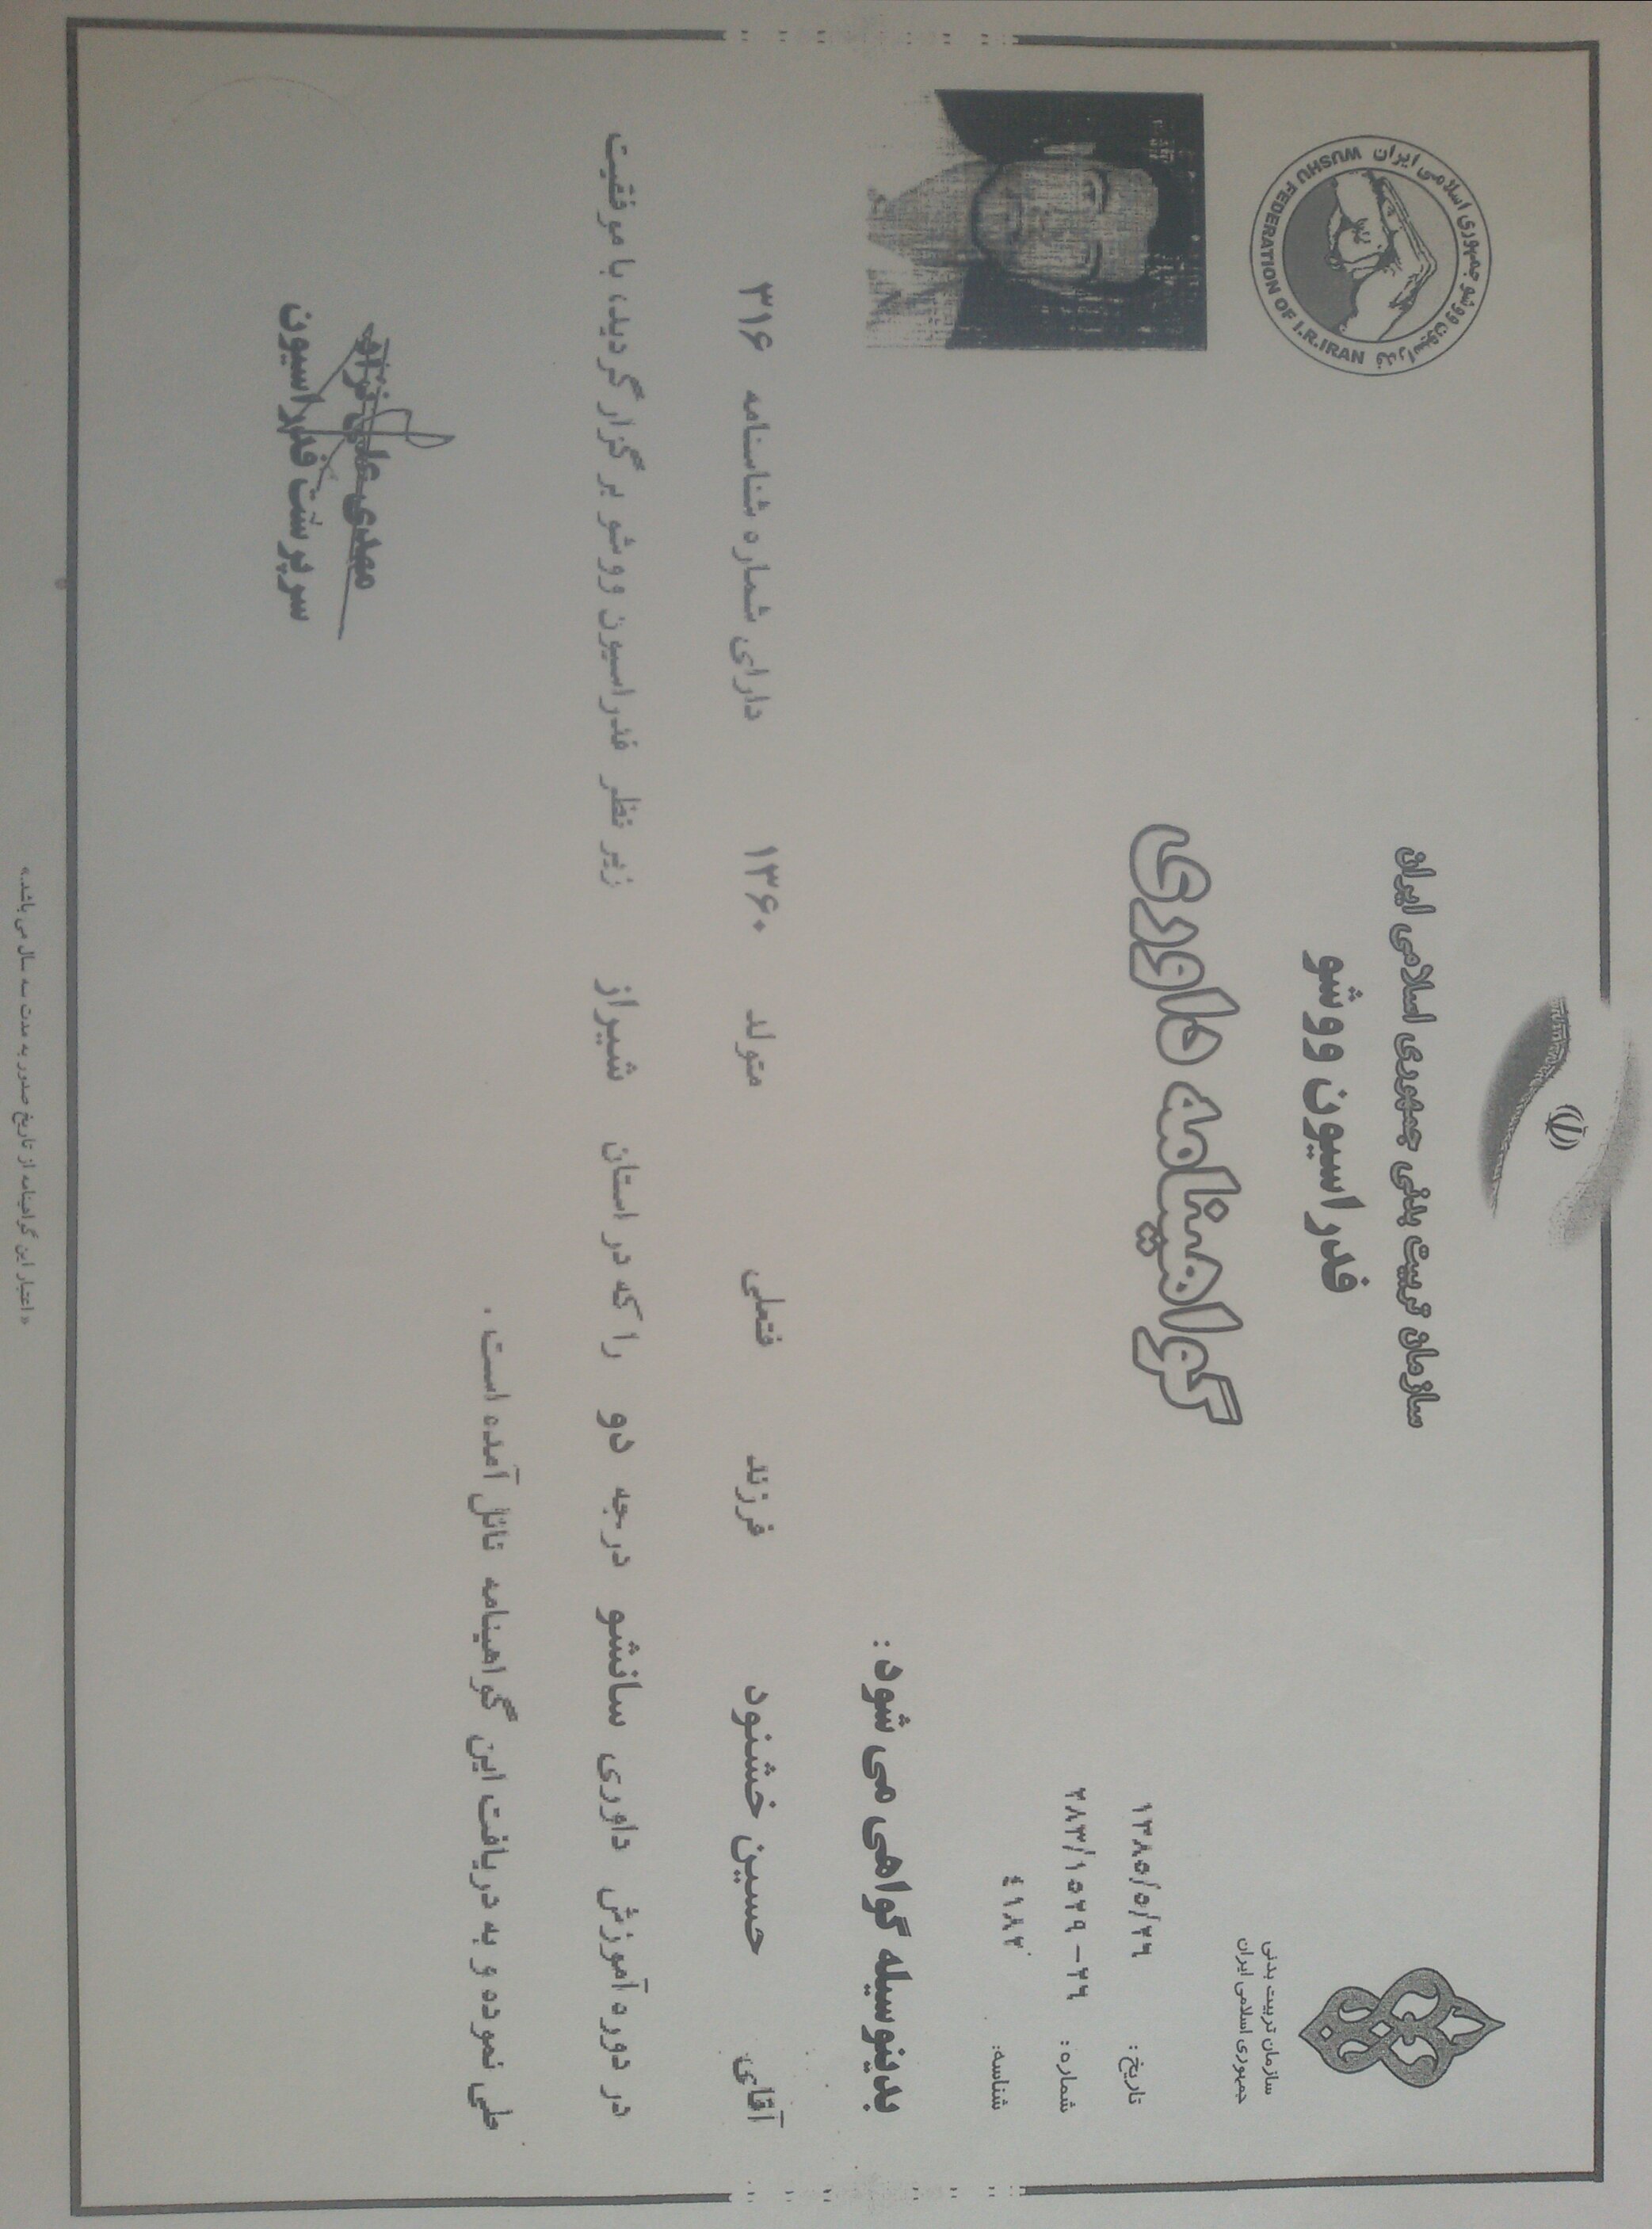 سازمان تربیت بدنی جمهوری اسلامی ایران
فدراسیون ووشو
گواهینامه داوری
فدراسیون ووشو جمهوری اسلامی ایران
WUSHU FEDERATION OF I.R.IRAN
سازمان تربیت بدنی
جمهوری اسلامی ایران
تاریخ: ۱۳۸۵/۵/۲۶
شماره: ۲۸۳/۱۵۲۹-۲۶
شناسه: ٤۱۸۲
بدینوسیله گواهی می شود:
آقای حسین خشنود فرزند فتحلی متولد ۱۳۶۰ دارای شماره شناسنامه ۳۱۶
در دوره آموزش داوری سانشو درجه دو را که در استان شیراز زیر نظر فدراسیون ووشو برگزار گردید، با موفقیت
طی نموده و به دریافت این گواهینامه نائل آمده است .
مهدی علی نژاد
سرپرست فدراسیون
«اعتبار این گواهینامه از تاریخ صدور به مدت سه سال می باشد.»